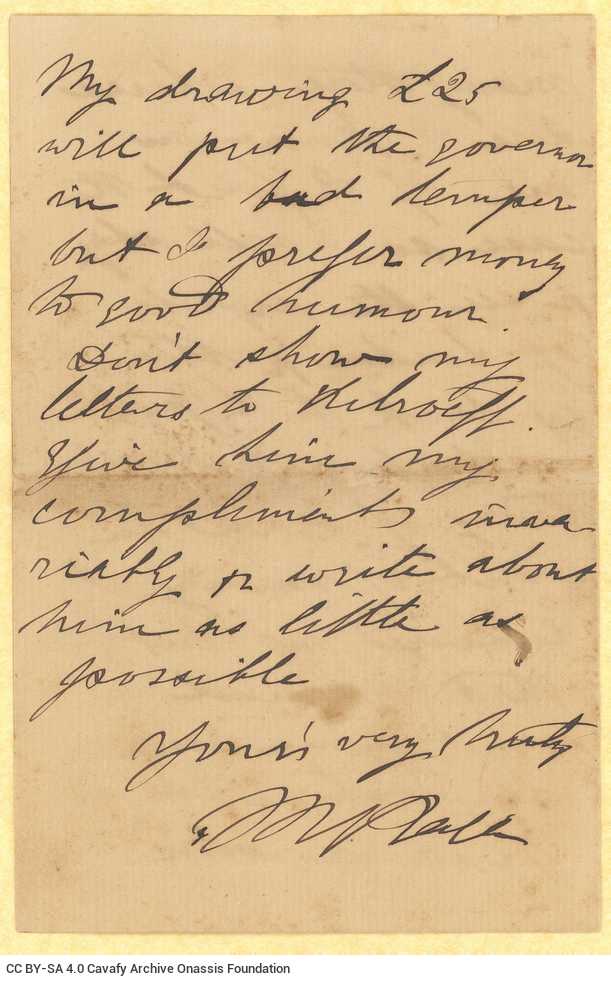 My drawing £25
will put the governor
in a bad temper
but I prefer money
to good humour.
Don't show my
letters to
Give him my
compliments inva
riably & write about
him as little as
possible
Your's very truly
Ralli
CC BY-SA 4.0 Cavafy Archive Onassis Foundation